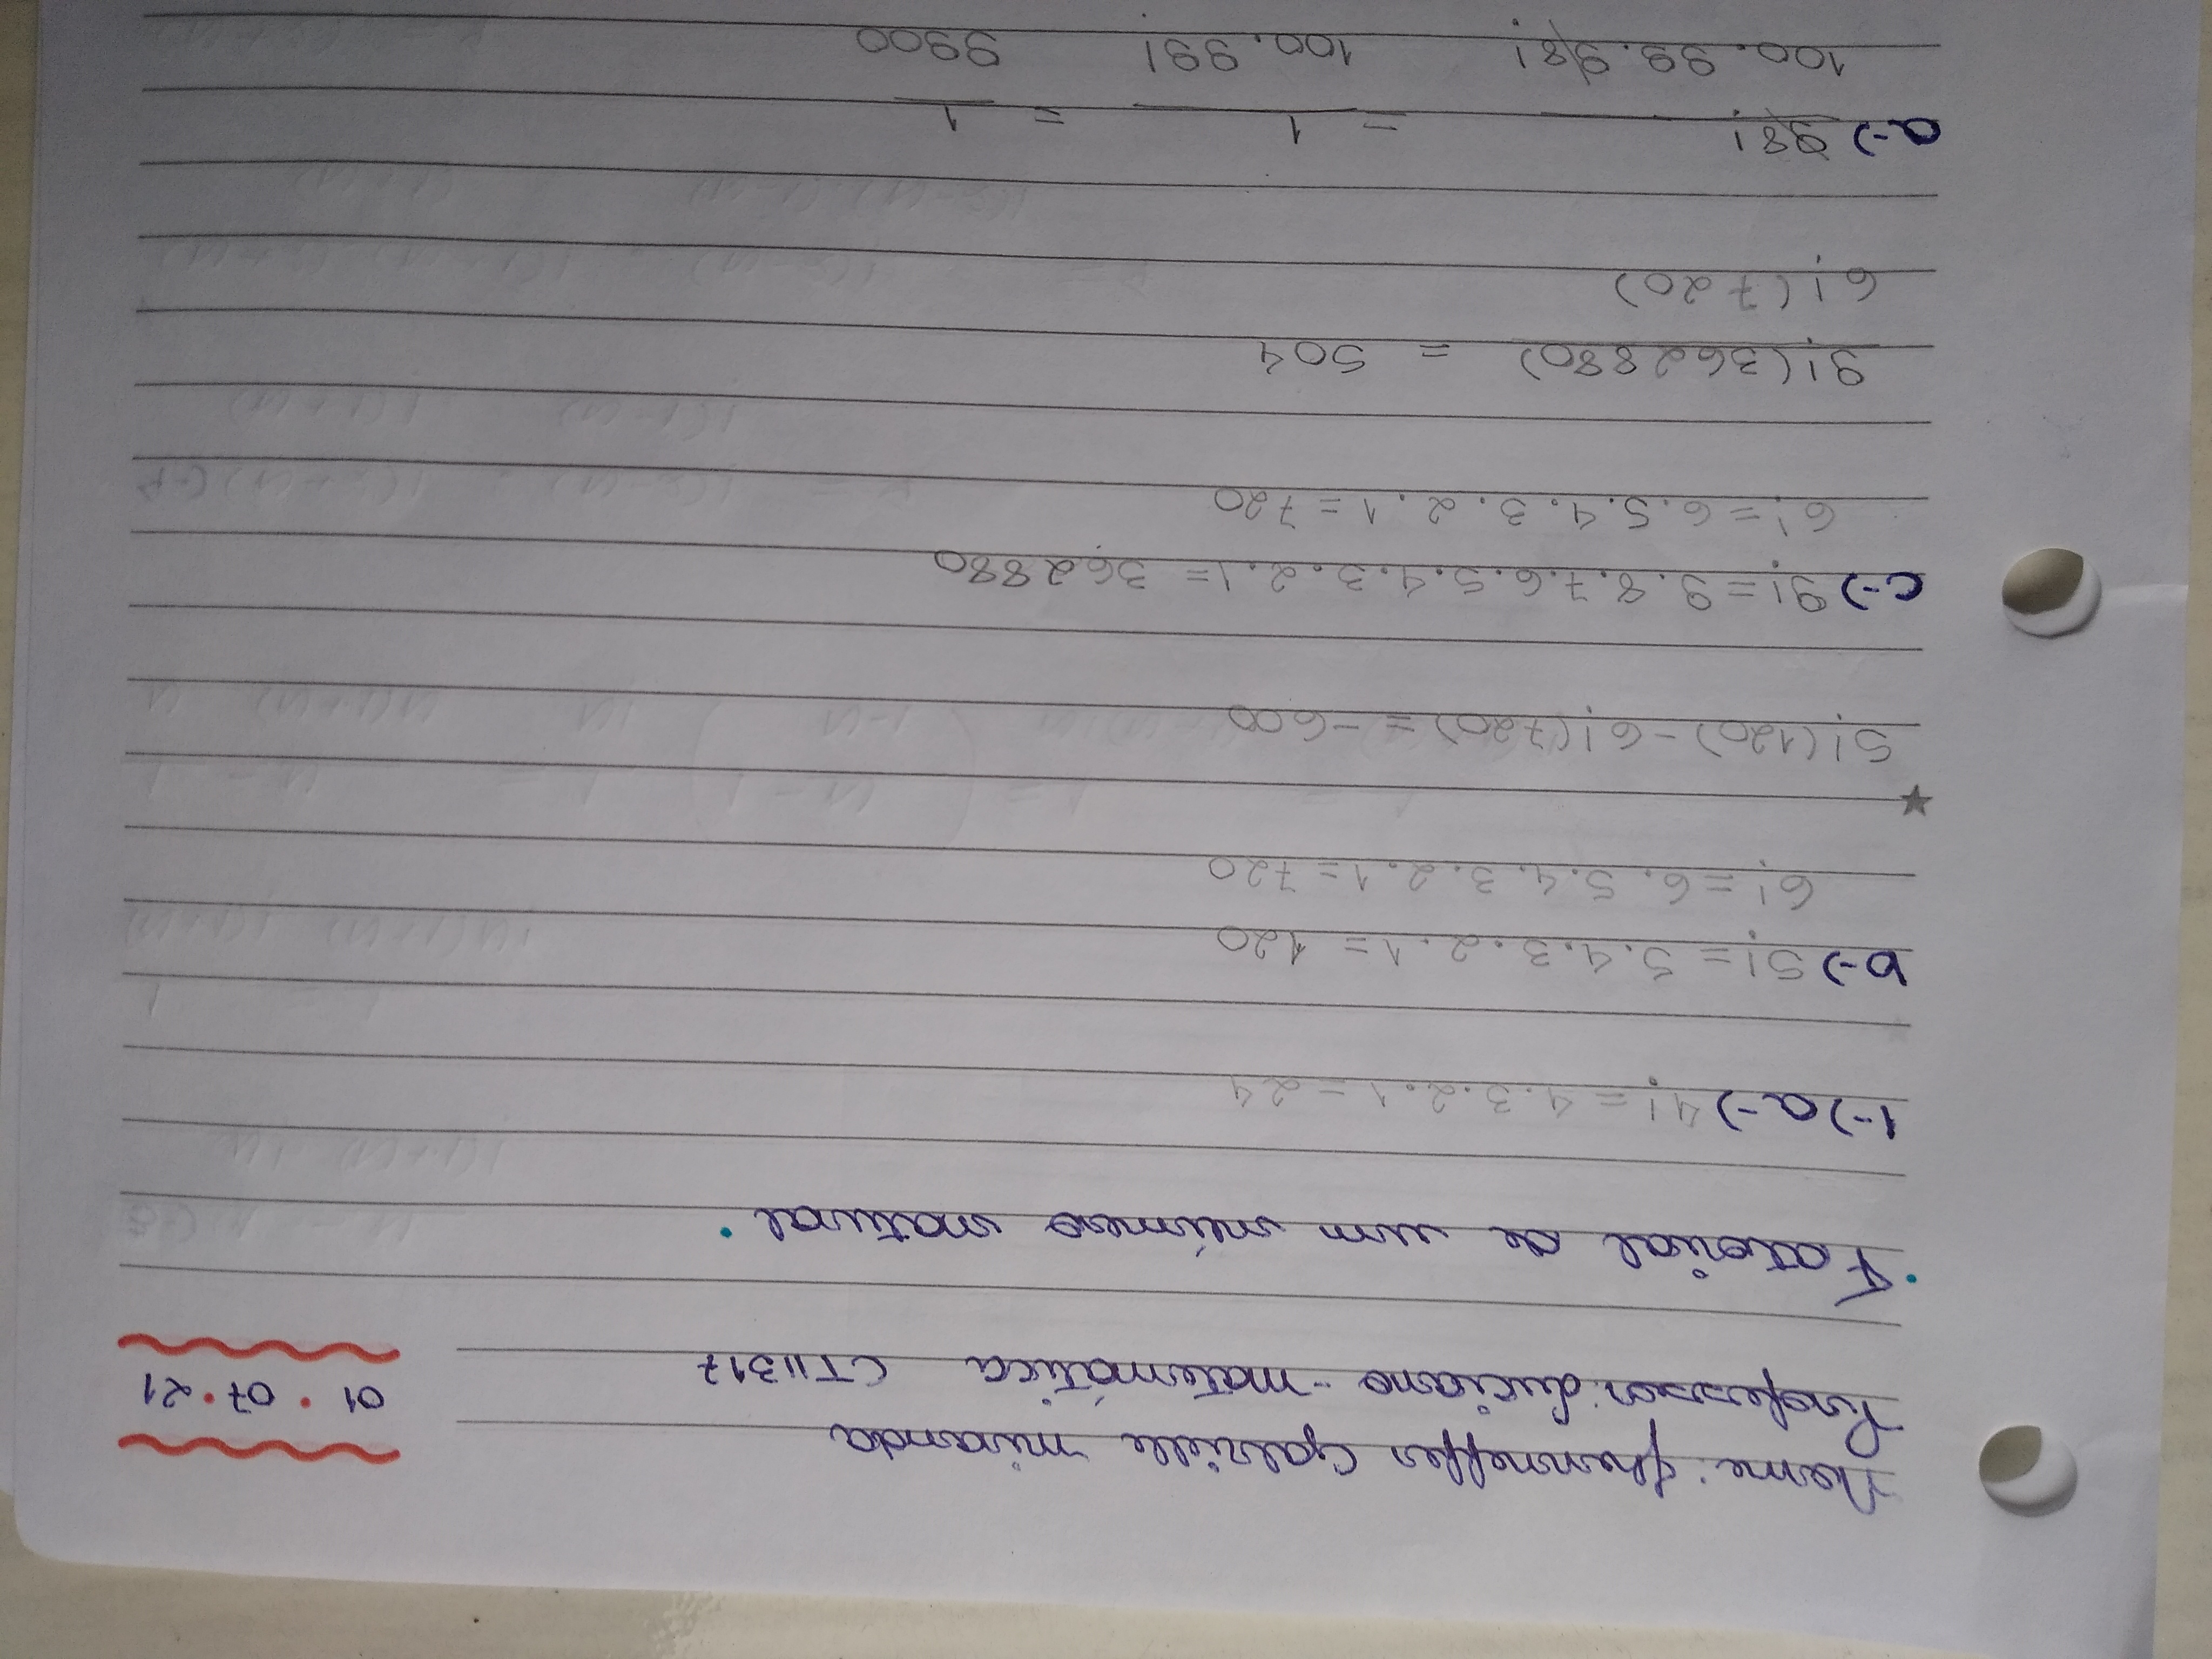 Nome: Jhenneffer Gabrielle miranda
Professor: Luciano - matemática CTII317
01 • 07 • 21
• Fatorial de um número natural •
1-) a-) 4! = 4.3.2.1 = 24
b-) 5! = 5.4.3.2.1 = 120
6! = 6.5.4.3.2.1 = 720
5!(120) - 6!(720) = -600
c-) 9! = 9.8.7.6.5.4.3.2.1 = 362880
6! = 6.5.4.3.2.1 = 720
9!(362880) = 504
6!(720)
a-) 98! = 1 = 1
100.99.98! 100.99! 9900